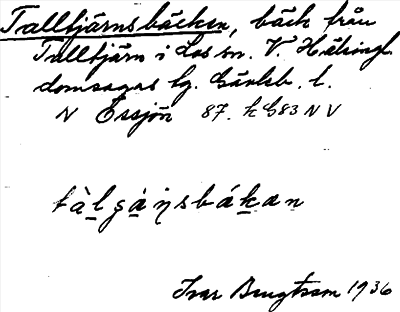 Talltjärnsbäcken, bäck från
Talltjärn i Los sn. V. Hälsingl.
domsagas tg. Gävleb. l.
N Essjön 87. k G83 N V
tàlgánsbákan
Ivar Bengtsson 1936